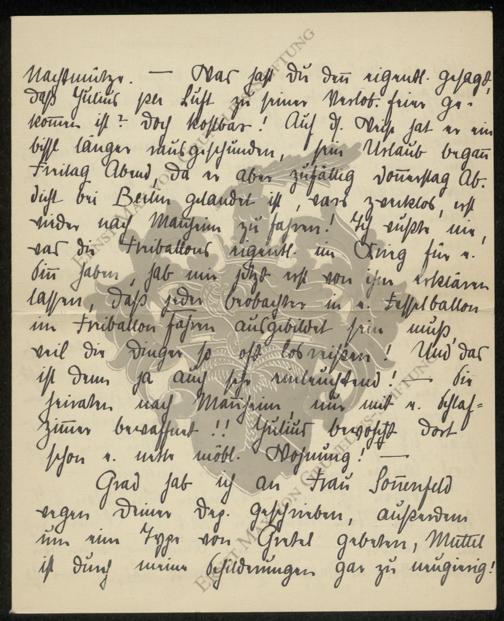 Nachtmütze. — Was sagst Du den̄ eigentl. gesagt,
daß Julius per Luft zu seiner Verlob.feier ge-
kom̄en ist? Doch kostbar! Auf d. Weise hat er ein
bißl länger rausgeschunden, sein Urlaub began̄
Freitag Abend da er aber zufällig Don̄erstag Ab.
dicht bei Berlin gelandet ist, wars zwecklos, erst
wieder nach Mannheim zu fahren! Ich wußte nie,
was die Freiballons eigentl. im Krieg für e.
Sin̄ haben, hab mir jetzt erst von ihm erklären
lassen, daß jeder Beobachter in e. Fesselballon
im Freiballon fahren ausgebildet sein muß,
weil die Dinger so oft losreißen! Und das
ist denn ja auch sehr einleuchtend! — Sie
heiraten nach Mannheim, nur mit e. Schlaf-
zimmer bewaffnet!! Julius bewohnt dort
schon e. nette möbl. Wohnung! —
Grad hab ich an Frau Son̄enfeld
wegen Deiner Dep. geschrieben, außerdem
um eine Type von Gretel gebeten, Mutul
ist durch meine Schilderungen gar zu neugierig!
ERNST MAX VON GRUNELIUS-STIFTUNG